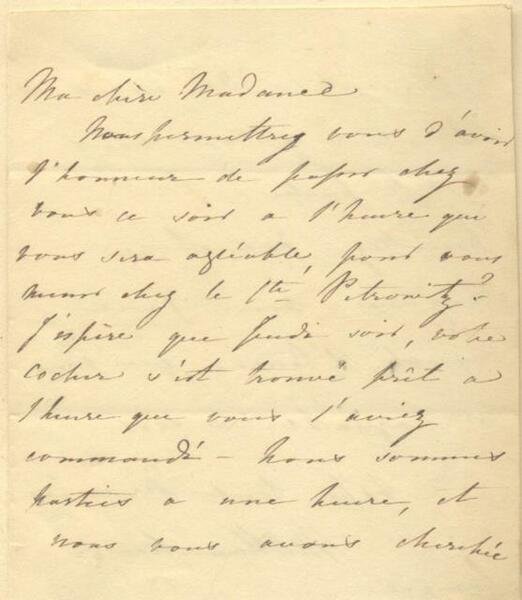 Ma chère Madame
Nous permettrez vous d'avoir
l'honneur de passer chez
vous ce soir a l'heure que
vous sera agréable, pour vous
mener chez le Cte Petrowitz?
J'espère que Jeudi soir, votre
cocher s'est trouvé prêt a
l'heure que vous l'aviez
commandé - Nous sommes
parties a une heure, et
nous vous avons cherchée